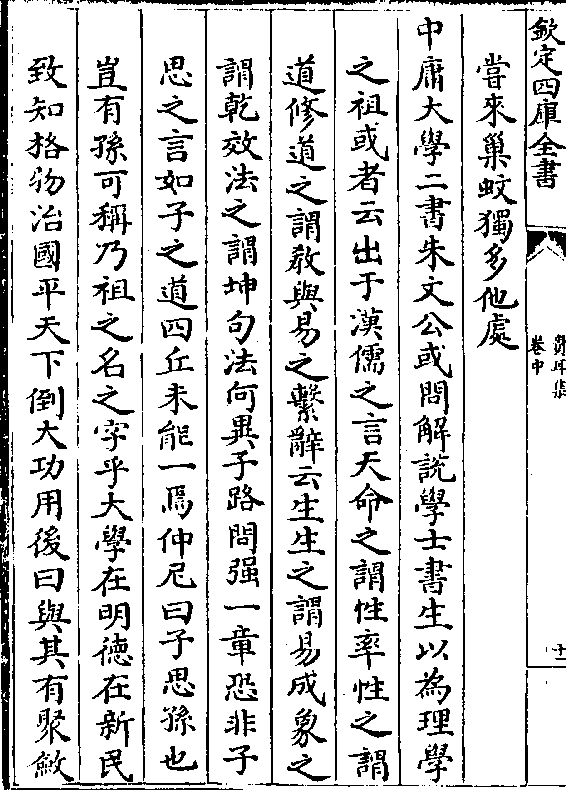 欽定四庫全書
貴耳集
卷中
十一
嘗來巢蚊獨多他處
中庸大學二書朱文公或問解説學士書生以為理學
之祖或者云出于漢儒之言天命之謂性率性之謂
道修道之謂教與易之繫辭云生生之謂易成象之
謂乾效法之謂坤句法何異子路問强一章恐非子
思之言如子之道四丘未能一焉仲尼曰子思孫也
豈有孫可稱乃祖之名之字乎大學在明德在新民
致知格物治國平天下倒大功用後曰與其有聚斂